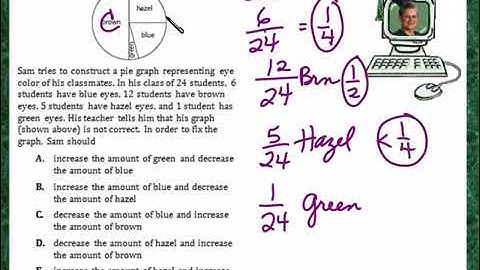 hazel
brown
blue
green
Sam tries to construct a pie graph representing eye
color of his classmates. In his class of 24 students, 6
students have blue eyes, 12 students have brown
eyes, 5 students have hazel eyes, and 1 student has
green eyes. His teacher tells him that his graph
(shown above) is not correct. In order to fix the
graph, Sam should
A. increase the amount of green and decrease
the amount of blue
B. increase the amount of blue and decrease
the amount of hazel
C. decrease the amount of blue and increase
the amount of brown
D. decrease the amount of hazel and increase
the amount of brown
6/24 = 1/4
12/24 Brn 1/2
5/24 Hazel < 1/4
1/24 Green